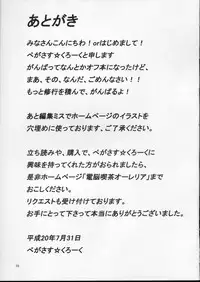 あとがき
みなさんこんにちわ!orはじめまして!
ぺがさす☆くろーくと申します
がんばってなんとかオフ本だけど、
まあ、その、なんだ、ごめんなさい!!
もっと修行を積んで、がんばるよ!
あと編集ミスでホームページのイラストを
穴埋めに使っております、ご了承ください。
立ち読みや、購入で、ぺがさす☆くろーくに
興味を持ってくれた方がおられましたら、
是非ホームページ「電脳喫茶オーレリア」まで
おこしください。
リクエストも受け付けております。
お手にとって下さって本当にありがとうございました。
平成20年7月31日
ぺがさす☆くろーく